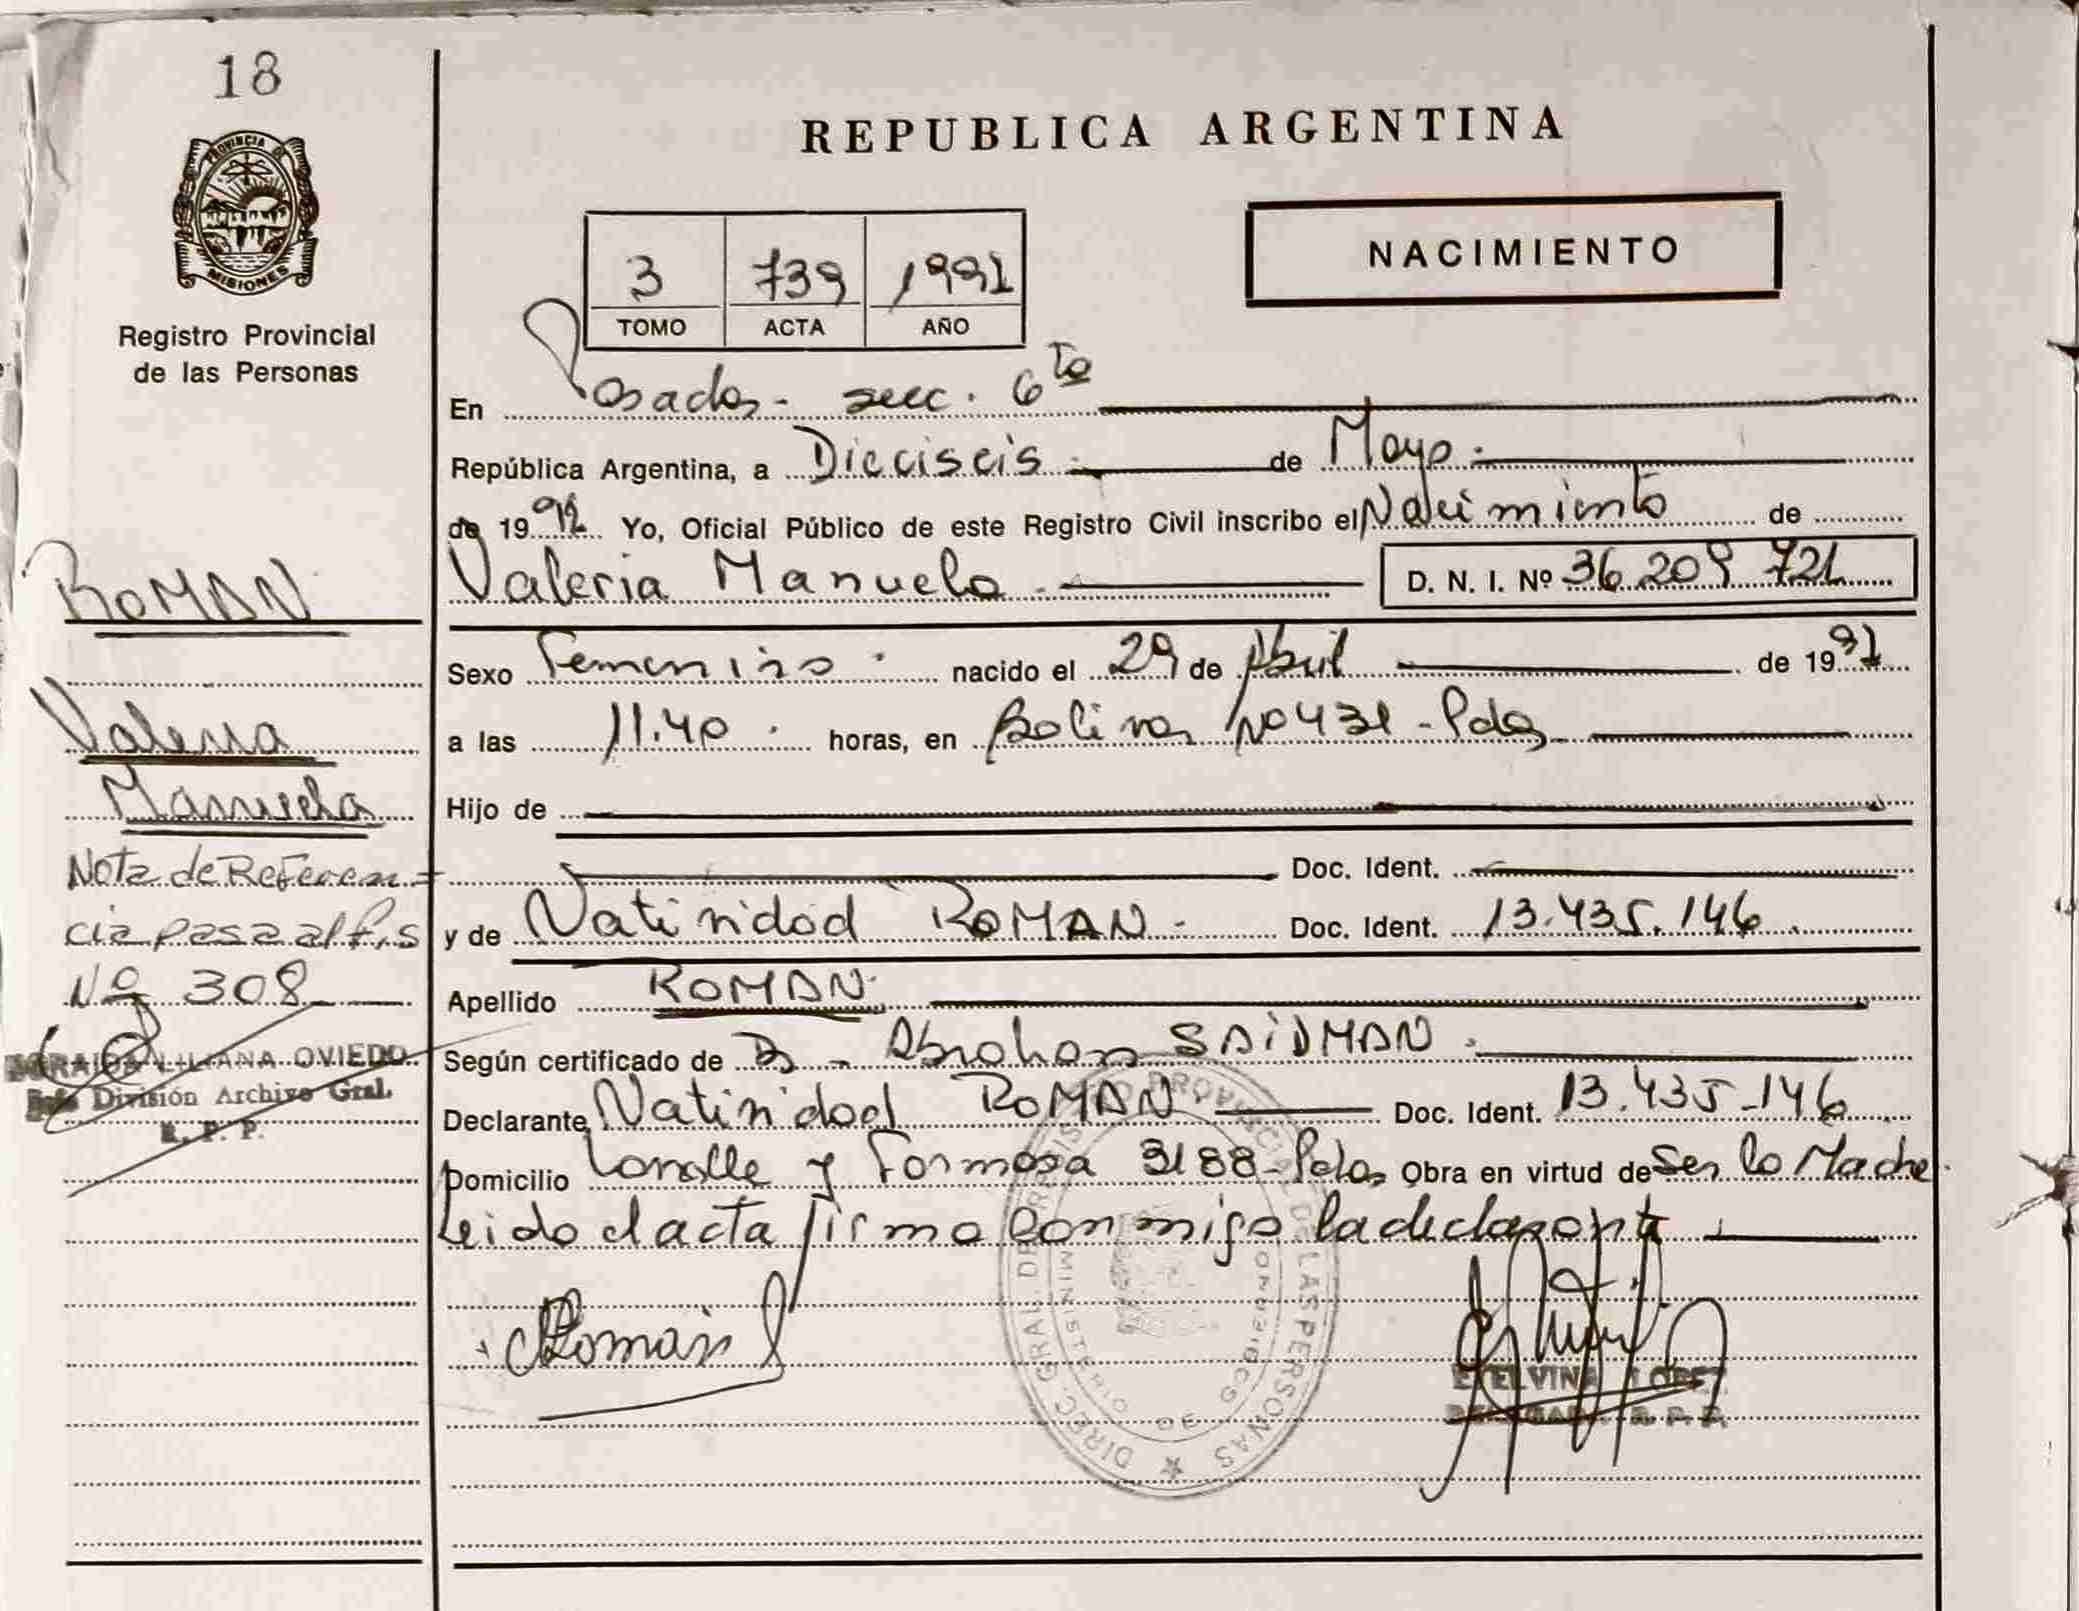 18
PROVINCIA DE
MISIONES
Registro Provincial
de las Personas
REPUBLICA ARGENTINA
NACIMIENTO
3 739 1991
TOMO ACTA AÑO
En Posadas - secc. 6ta
República Argentina, a Dieciseis de Mayo
de 1991 Yo, Oficial Público de este Registro Civil inscribo el Nacimiento de
Valeria Manuela D. N. I. Nº 36.209.721
Sexo Femenino nacido el 29 de Abril de 1991
a las 11.40 horas, en Bolivar Nº 431 - Pdas
Hijo de
Doc. Ident.
y de Natividad ROMAN Doc. Ident. 13.435.146
Apellido ROMAN
Según certificado de D - Abraham SAIDMAN
Declarante Natividad ROMAN Doc. Ident. 13.435-146
Domicilio y Formosa 3188 - Pdas Obra en virtud de Ser la Madre
Leido el acta firma conmigo la declarante
ROMAN
Valeria
Manuela
Nota de Referen=
cia pasa al Fjs
Nº 308
LILIANA OVIEDO
Jefe División Archivo Gral.
R. P. P.
Roman
ETELVINA LOPEZ
R. P. P.
DIREC. GRAL. DE REGISTRO PROVINCIAL DE LAS PERSONAS
MINISTERIO DE GOBIERNO